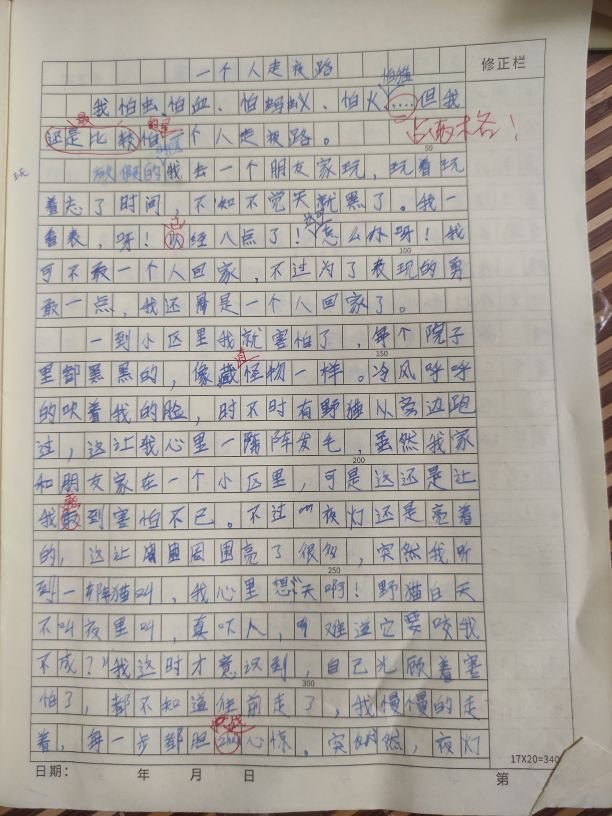 一个人走夜路
修正栏
怕猫
我怕虫、怕血、怕蚂蚁、怕火……但我
最 的是
还是比较怕一个人走夜路。
占两格！
50
放假的我去一个朋友家玩，玩着玩
玩
着忘了时间，不知不觉天就黑了。我一
已
看表，呀！以经八点了！怎么办呀！我
100
可不敢一个人回家，不过为了表现的勇
敢一点，我还是一个人回家了。
一到小区里我就害怕了，每个院子
150
里都黑黑的，像藏怪物一样。冷风呼呼
的吹着我的脸，时不时有野猫从旁边跑
过，这让我心里一阵阵发毛，虽然我家
200
和朋友家在一个小区里，可是这还是让
感
我到害怕不已。不过夜灯还是亮着
的，这让周围亮了很多，突然我听
250
到一群猫叫，我心里想“天啊！野猫白天
不叫夜里叫，真吓人，难道它要咬我
不成？”我这时才意识到，自己光顾着害
300
怕了，都不知道往前走了，我慢慢的走
着，每一步都胆心惊。突然，夜灯
17X20=340
日期： 年 月 日 第